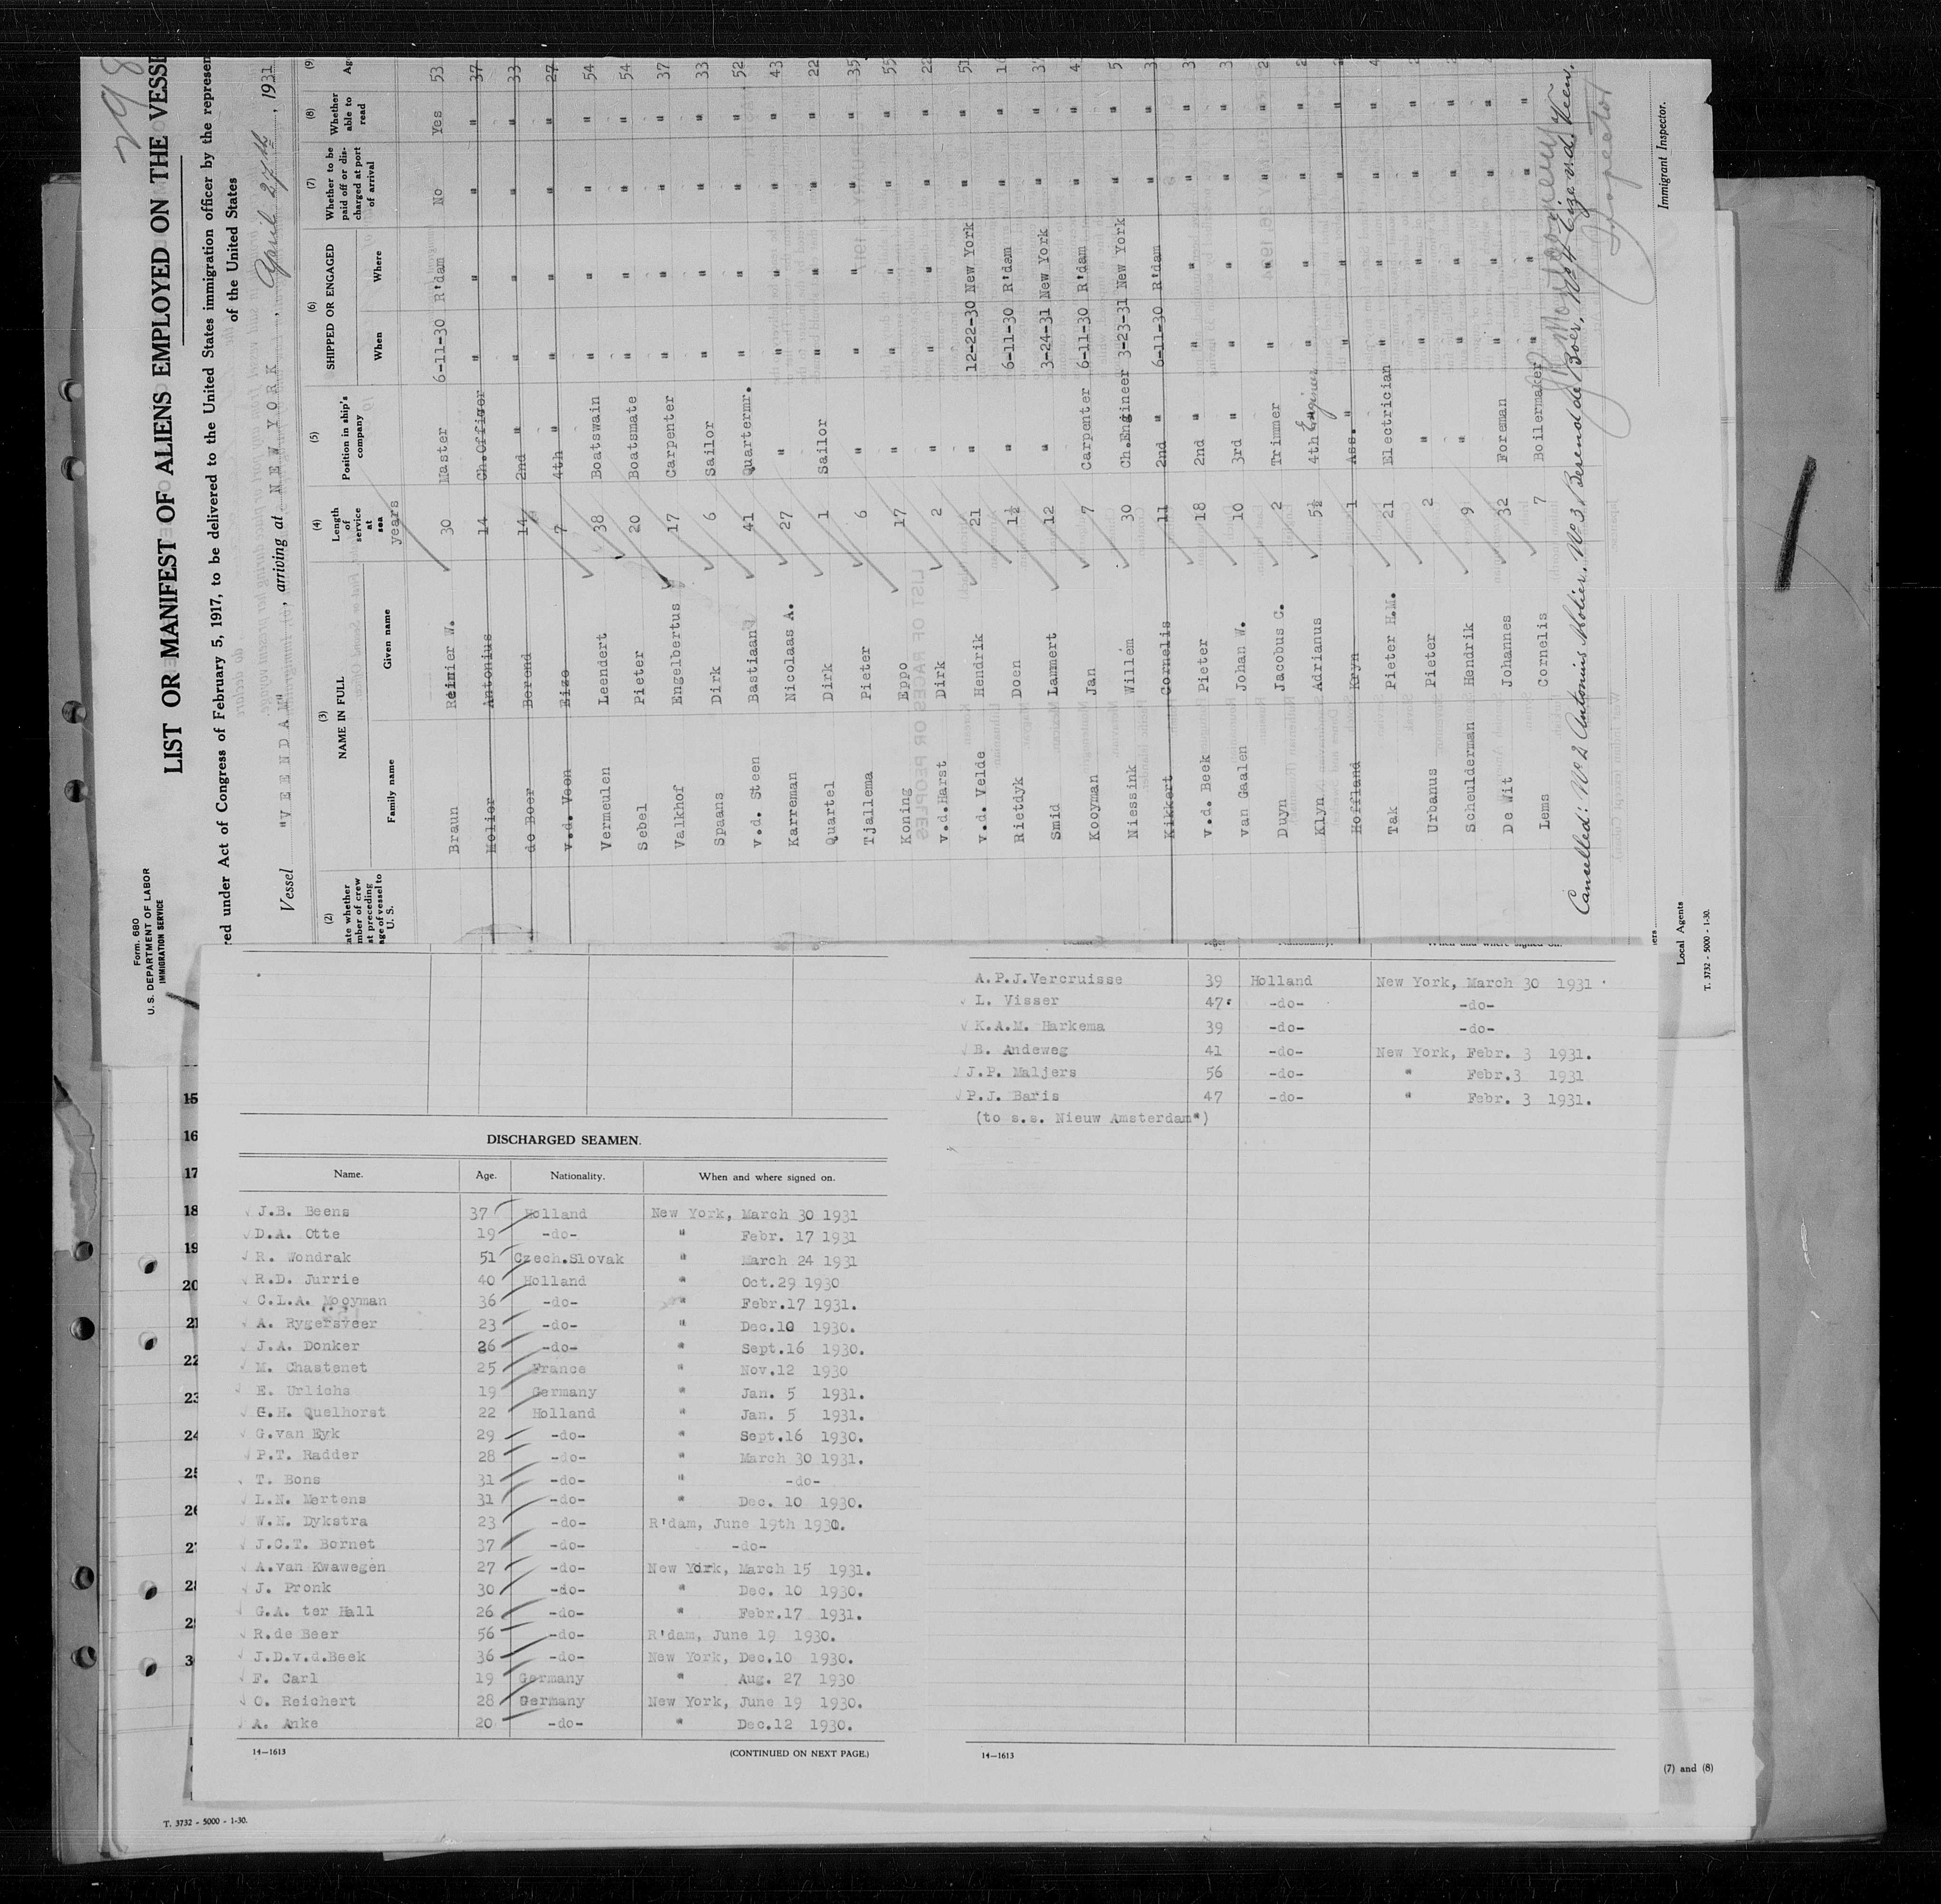 298
LIST OR MANIFEST OF ALIENS EMPLOYED ON THE VESSE
red under Act of Congress of February 5, 1917, to be delivered to the United States immigration officer by the represen
of the United States
Form. 680
U. S. DEPARTMENT OF LABOR
IMMIGRATION SERVICE
Vessel "VEENDAM", arriving at NEW YORK, April 27th, 1931
(2) (3) (4) (5) (6) (7) (8) (9)
ate whether
mber of crew
st preceding
age of vessel to
U. S.
NAME IN FULL
Family name Given name
Length of service at sea
years
Position in ship's company
SHIPPED OR ENGAGED
When Where
Whether to be paid off or discharged at port of arrival
Whether able to read
Ag
Braun Reinier W. 30 Master 6-11-30 R'dam No Yes 53
Molier Antonius 14 Ch.Officer " " " " 37
de Boer Berend 14 2nd " " " " " 33
v.d. Veen Eize 7 4th " " " " " 27
Vermeulen Leendert 38 Boatswain " " " " 54
Sebel Pieter 20 Boatsmate " " " " 54
Valkhof Engelbertus 17 Carpenter " " " " 37
Spaans Dirk 6 Sailor " " " " 33
v.d. Steen Bastiaan 41 Quartermr. " " " " 52
Karreman Nicolaas A. 27 " " " " " 43
Quartel Dirk 1 Sailor " " " " 22
Tjallema Pieter 6 " " " " " 35
Koning Eppo 17 " " " " " 55
v.d.Harst Dirk 2 " " " " " 22
v.d. Velde Hendrik 21 " 12-22-30 New York " " 51
Rietdyk Doen 1½ " 6-11-30 R'dam " " 1
Smid Lammert 12 " 3-24-31 New York " " 3
Kooyman Jan 7 Carpenter 6-11-30 R'dam " " 4
Niessink Willem 30 Ch.Engineer 3-23-31 New York " " 5
Kikkert Cornelis 11 2nd " 6-11-30 R'dam " " 3
v.d. Beek Pieter 18 2nd " " " " " 3
van Galen Johan W. 10 3rd " " " " " 3
Duyn Jacobus C. 2 Trimmer " " " " 2
Klyn Adrianus 5½ 4th Engineer " " " " 2
Hoffland Kryn 1 Ass. " " " " "
Tak Pieter H.M. 21 Electrician " " " " 4
Urbanus Pieter 2 " " " " " 2
Scheulderman Hendrik 9 " " " " " 2
De Wit Johannes 32 Foreman " " " " 4
Lems Cornelis 7 Boilermaker " " " "
Cancelled: No 2 Antonius Molier. No 3 Berend de Boer, No 4 Eize v.d. Veen.
Inspector
Immigrant Inspector.
Local Agents
T. 3732 - 5000 - 1-30.
15
16
17
18
19
20
21
22
23
24
25
26
DISCHARGED SEAMEN.
Name. Age. Nationality. When and where signed on.
J.B. Beens 37 Holland New York, March 30 1931
D.A. Otte 19 -do- " Febr. 17 1931
R. Wondrak 51 Czech.Slovak " March 24 1931
R.D. Jurrie 40 Holland " Oct.29 1930
C.L.A. Mooyman 36 -do- " Febr.17 1931.
A. Rygersveer 23 -do- " Dec.10 1930.
J.A. Donker 26 -do- " Sept.16 1930.
M. Chastenet 25 France " Nov.12 1930
E. Urlichs 19 Germany " Jan. 5 1931.
G.H. Quelhorst 22 Holland " Jan. 5 1931.
G.van Eyk 29 -do- " Sept.16 1930.
P.T. Radder 28 -do- " March 30 1931.
T. Bons 31 -do- " -do-
L.N. Mertens 31 -do- " Dec. 10 1930.
W.N. Dykstra 23 -do- R'dam, June 19th 1930.
J.C.T. Bornet 37 -do- -do-
A.van Kwawegen 27 -do- New York, March 15 1931.
J. Pronk 30 -do- " Dec. 10 1930.
G.A. ter Hall 26 -do- " Febr.17 1931.
R.de Beer 56 -do- R'dam, June 19 1930.
J.D.v.d.Beek 36 -do- New York, Dec.10 1930.
F. Carl 19 Germany " Aug. 27 1930
O. Reichert 28 Germany New York, June 19 1930.
A. Anke 20 -do- " Dec.12 1930.
14—1613 (CONTINUED ON NEXT PAGE.)
A.P.J.Vercruisse 39 Holland New York, March 30 1931
L. Visser 47 -do- -do-
K.A.M. Harkema 39 -do- -do-
B. Andeweg 41 -do- New York, Febr. 3 1931.
J.P. Maljers 56 -do- " Febr.3 1931
P.J. Baris 47 -do- " Febr. 3 1931.
(to s.s. Nieuw Amsterdam")
14—1613
(7) and (8)
T. 3732 - 5000 - 1-30.